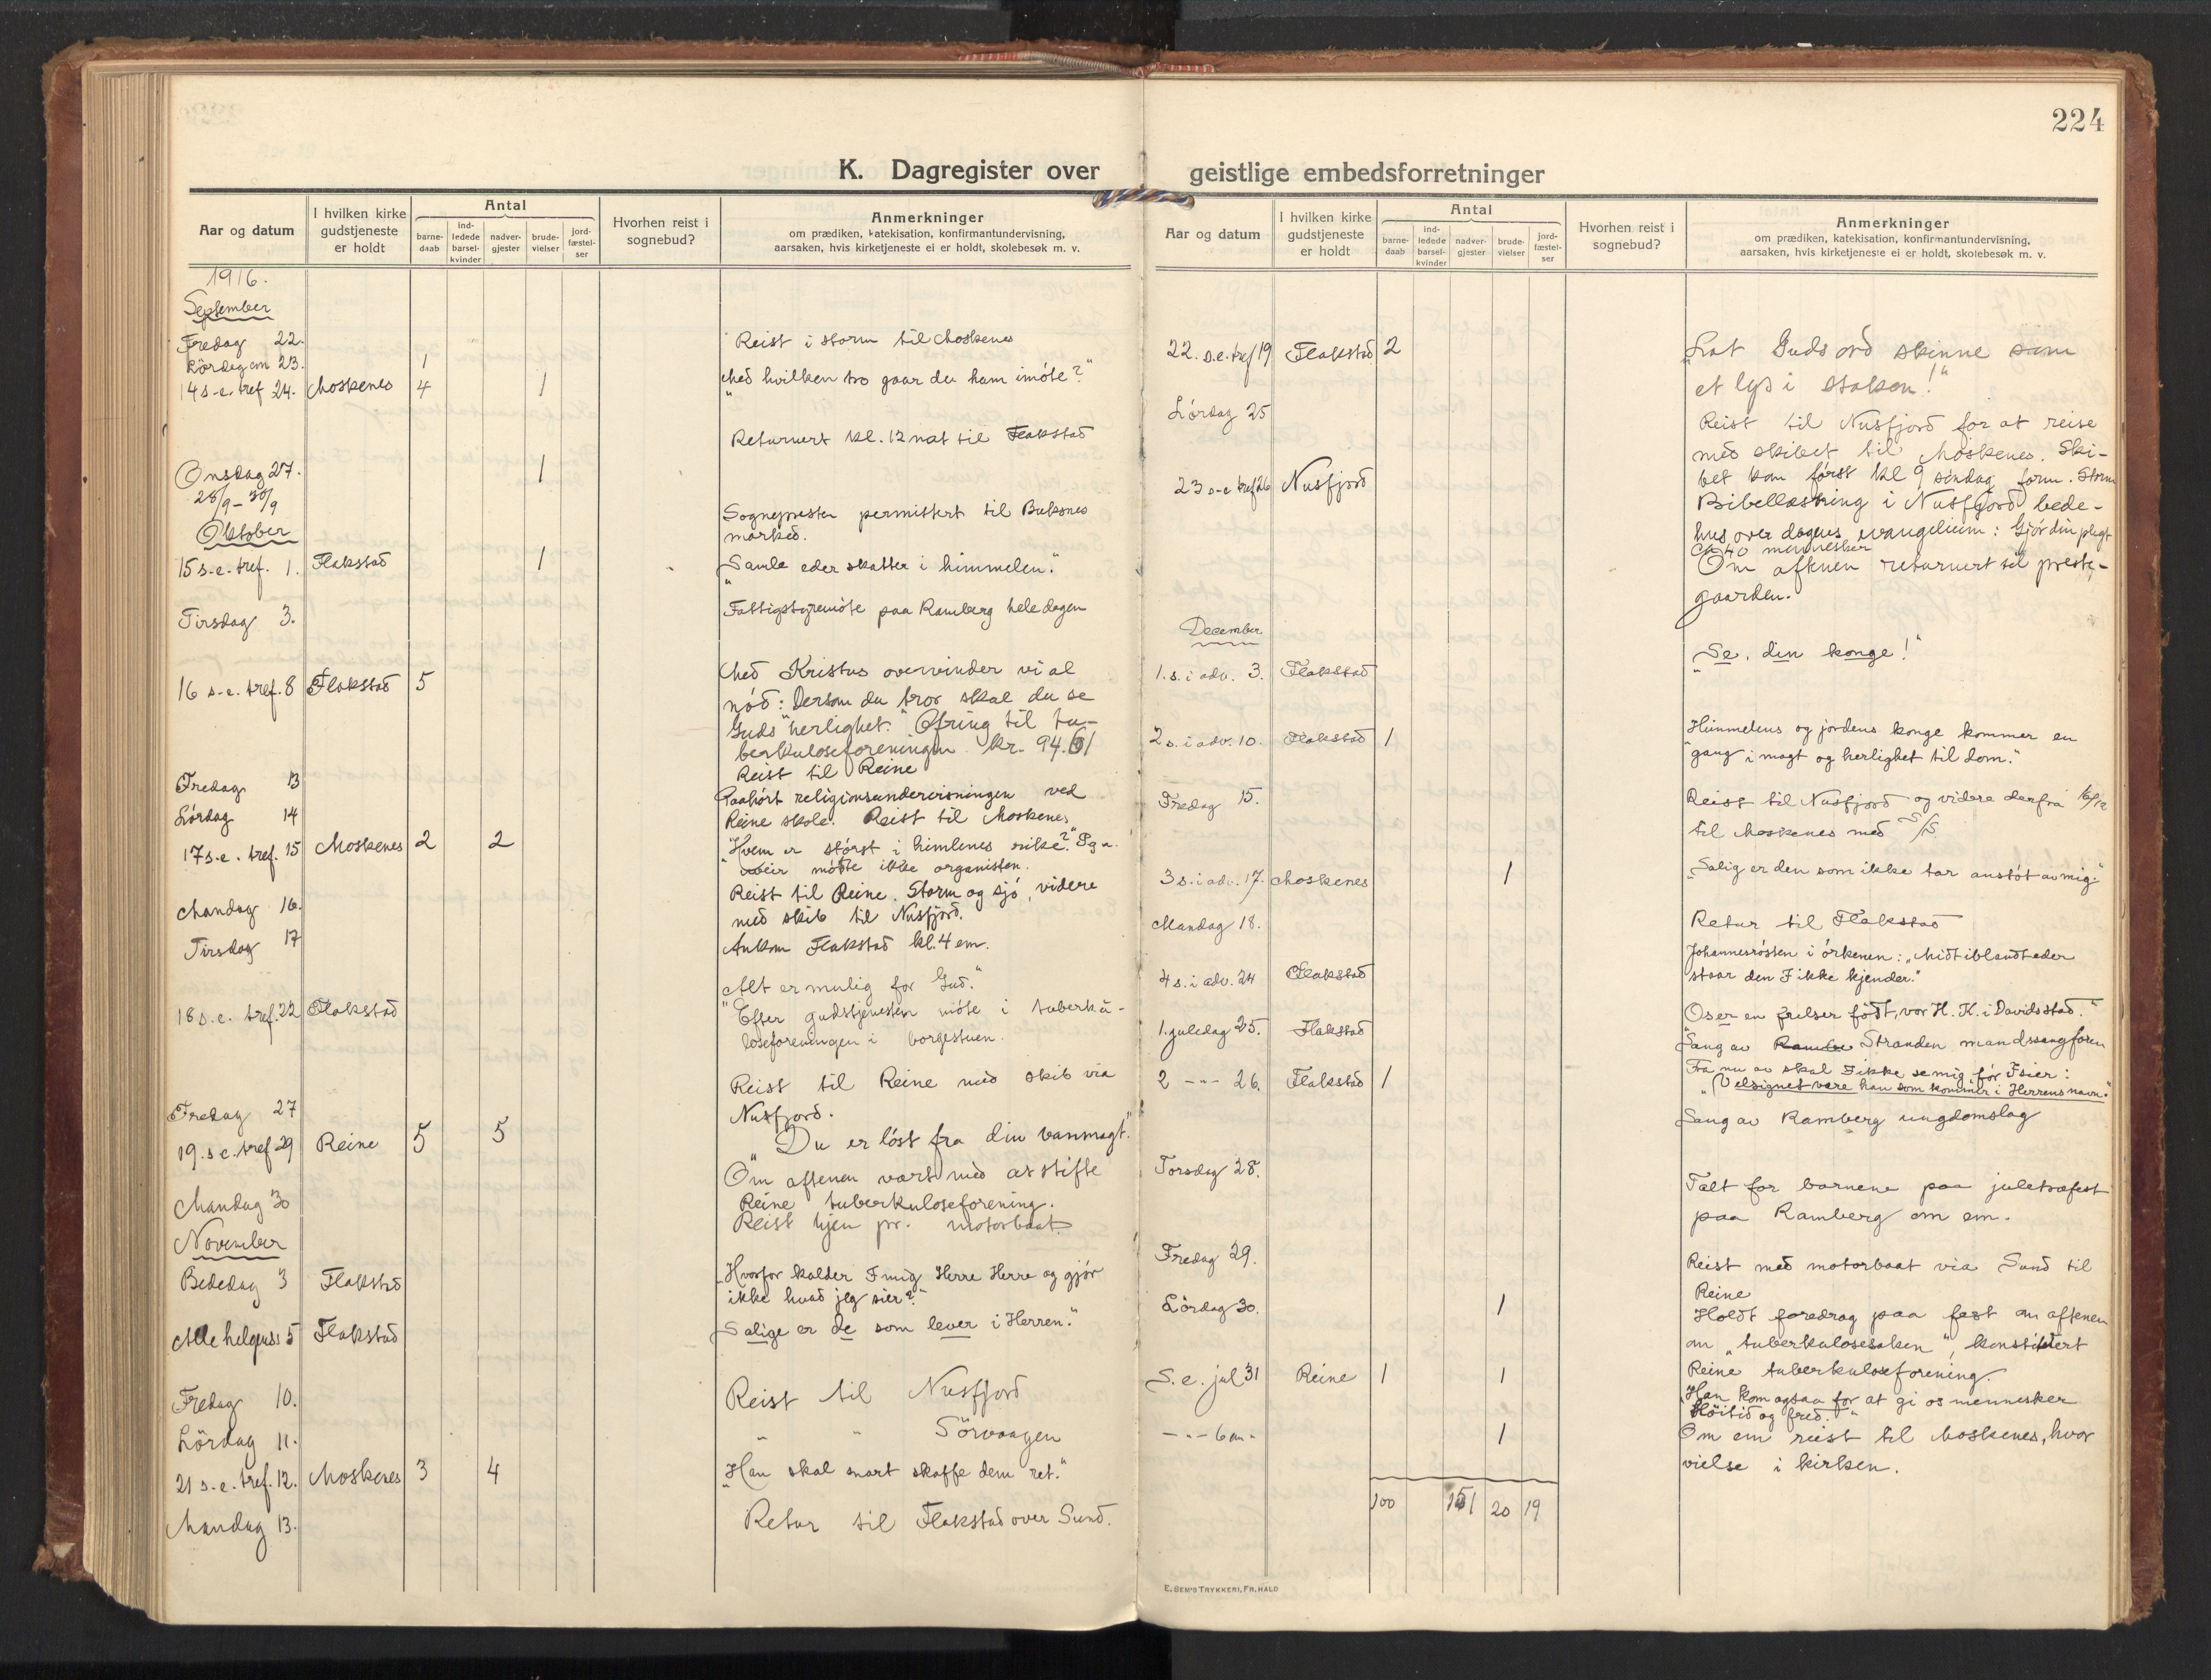 224
K. Dagregister over geistlige embedsforretninger
Aar og datum
I hvilken kirke gudstjeneste er holdt
Antal
barne-daab
ind-ledede barsel-kvinder
nadver-gjester
brude-vielser
jord-fæstel-ser
Hvorhen reist i sognebud?
Anmerkninger
om prædiken, katekisation, konfirmantundervisning,
aarsaken, hvis kirketjeneste ei er holdt, skolebesøk m. v.
1916.
September
Fredag 22. Reist i storm til Moskenes
Lördag em 23. 1
14 s. e. tref 24. Moskenes 4 1 "Med hvilken tro gaar du ham imöte?"
Returnert kl. 12 nat til Flakstad
Onsdag 27. 1
28/9 - 30/9 Sognepresten permittert til Buksnes
marked.
Oktober
15 s. e. tref. 1. Flakstad 1 "Samle eder skatter i himmelen."
Tirsdag 3. Fattigstyremöte paa Ramberg hele dagen
16 s. e. tref. 8 Flakstad 5 Med Kristus overvinder vi al
nöd: Dersom du tror skal du se
Guds herlighet." Ofring til tu-
berkuloseforeningen kr. 94.61
Fredag 13 Reist til Reine
Lördag 14 Paahört religionsundervisningen ved
Reine skole. Reist til Moskenes
17 s. e. tref. 15 Moskenes 2 2 "Hvem er störst i himlenes rike?" Pg a.
uveir mötte ikke organisten.
Mandag 16. Reist til Reine. Storm og sjö, videre
med skib til Nusfjord.
Tirsdag 17 Ankom Flakstad kl. 4 em.
18 s. e. tref. 22 Flakstad "Alt er mulig for Gud."
Efter gudstjenesten möte i tuberku-
loseforeningen i borgestuen.
Fredag 27 Reist til Reine med skib via
Nusfjord.
19. s e. tref 29 Reine 5 5 "Du er löst fra din vanmagt."
Om aftenen vært med at stifte
Reine tuberkuloseforening.
Mandag 30 Reist hjem pr. motorbaat.
November
Bededag 3 Flakstad "Hvorfor kalder I mig Herre Herre og gjör
ikke hvad jeg sier?"
Alle helgens 5 Flakstad Salige er de som lever i Herren."
Fredag 10. Reist til Nusfjord
Lördag 11. " " Sörvaagen
21 s. e. tref. 12. Moskenes 3 4 "Han skal snart skaffe dem ret."
Mandag 13. Retur til Flakstad over Sund.
Aar og datum
I hvilken kirke gudstjeneste er holdt
Antal
barne-daab
ind-ledede barsel-kvinder
nadver-gjester
brude-vielser
jord-fæstel-ser
Hvorhen reist i sognebud?
Anmerkninger
om prædiken, katekisation, konfirmantundervisning,
aarsaken, hvis kirketjeneste ei er holdt, skolebesøk m. v.
22. s. e. tref 19 Flakstad 2 "Lat Guds ord skinne som
et lys i staken!"
Lördag 25 Reist til Nusfjord for at reise
med skibet til Moskenes. Ski-
bet kom først kl 9 söndag form. Storm
23 s. e tref 26 Nusfjord Bibellæsning i Nusfjord bede-
hus over dagens evangelium: Gjör din plegt
ca 40 mennesker
Om aftnen returnert til preste-
gaarden.
December
1. s. i adv. 3. Flakstad "Se, din konge!"
2 s. i adv. 10. Flakstad 1 Himmelens og jordens konge kommer en
gang i magt og herlighet til dom."
Fredag 15. Reist til Nusfjord og videre derfra 16/12
til Moskenes med S/S
3 s. i adv. 17. Moskenes 1 "Salig er den som ikke tar anstöt av mig."
Mandag 18. Retur til Flakstad
4 s. i adv. 24 Flakstad Johannesrösten i örkenen: "Midt iblandt eder
staar den I ikke kjender."
1. juledag 25. Flakstad Os er en frelser födt, vor H. K. i Davids stad."
Sang av Stranden mandssangforen
2 - " - 26. Flakstad 1 Fra nu av skal I ikke se mig för I sier:
"Velsignet være han som kommer i Herrens navn."
Sang av Ramberg ungdomslag
Torsdag 28. Talt for barnene paa juletræfest
paa Ramberg om em.
Fredag 29. Reist med motorbaat via Sund til
Reine
Lördag 30. 1 Holdt foredrag paa fest om aftenen
om "tuberkulosesaken", konstituert
Reine tuberkuloseforening.
S. e. jul 31 Reine 1 1 "Han kom ogsaa for at gi os mennesker
Höitid og fred."
- " - em - 1 Om em reist til Moskenes, hvor
vielse i kirken.
100 151 20 19
E. SEM'S TRYKKERI, FR.HALD